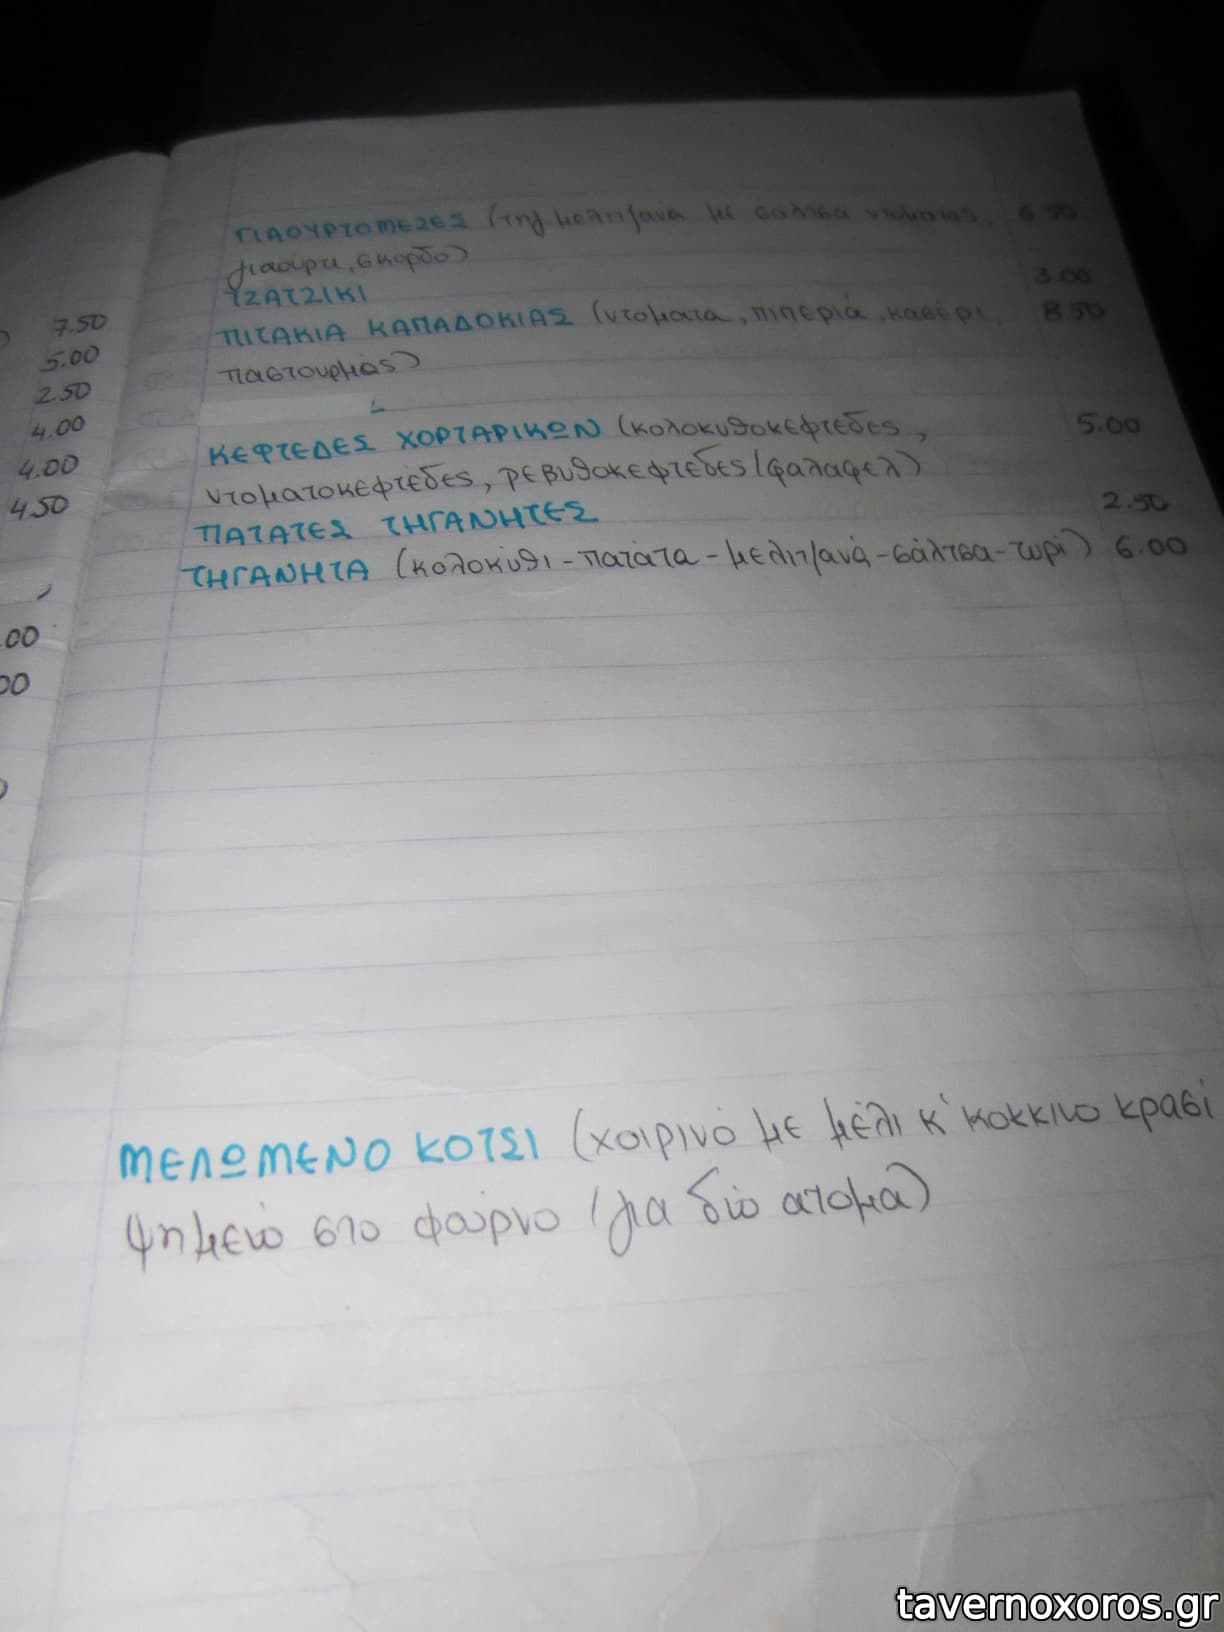 ΓΙΑΟΥΡΤΟΜΕΖΕΣ (τηγ. μελιτζανα με σαλτσα ντοματας, 6.50
γιαουρτι, σκορδο)
ΤΖΑΤΖΙΚΙ 3.00
ΠΙΤΑΚΙΑ ΚΑΠΑΔΟΚΙΑΣ (ντομάτα, πιπεριά, κασέρι, 8.50
παστουρμάς)
ΚΕΦΤΕΔΕΣ ΧΟΡΤΑΡΙΚΩΝ (κολοκυθοκεφτέδες, 5.00
ντοματοκεφτέδες, ρεβυθοκεφτέδες (φαλαφελ)
ΠΑΤΑΤΕΣ ΤΗΓΑΝΗΤΕΣ 2.50
ΤΗΓΑΝΗΤΑ (κολοκύθι - πατάτα - μελιτζανά - σάλτσα - τυρί) 6.00
ΜΕΛΩΜΕΝΟ ΚΟΤΣΙ (χοιρινό με μέλι κ' κοκκινο κρασί
ψημενο στο φούρνο (για δύο ατομα)
7.50
5.00
2.50
4.00
4.00
4.50
00
00
tavernoxoros.gr